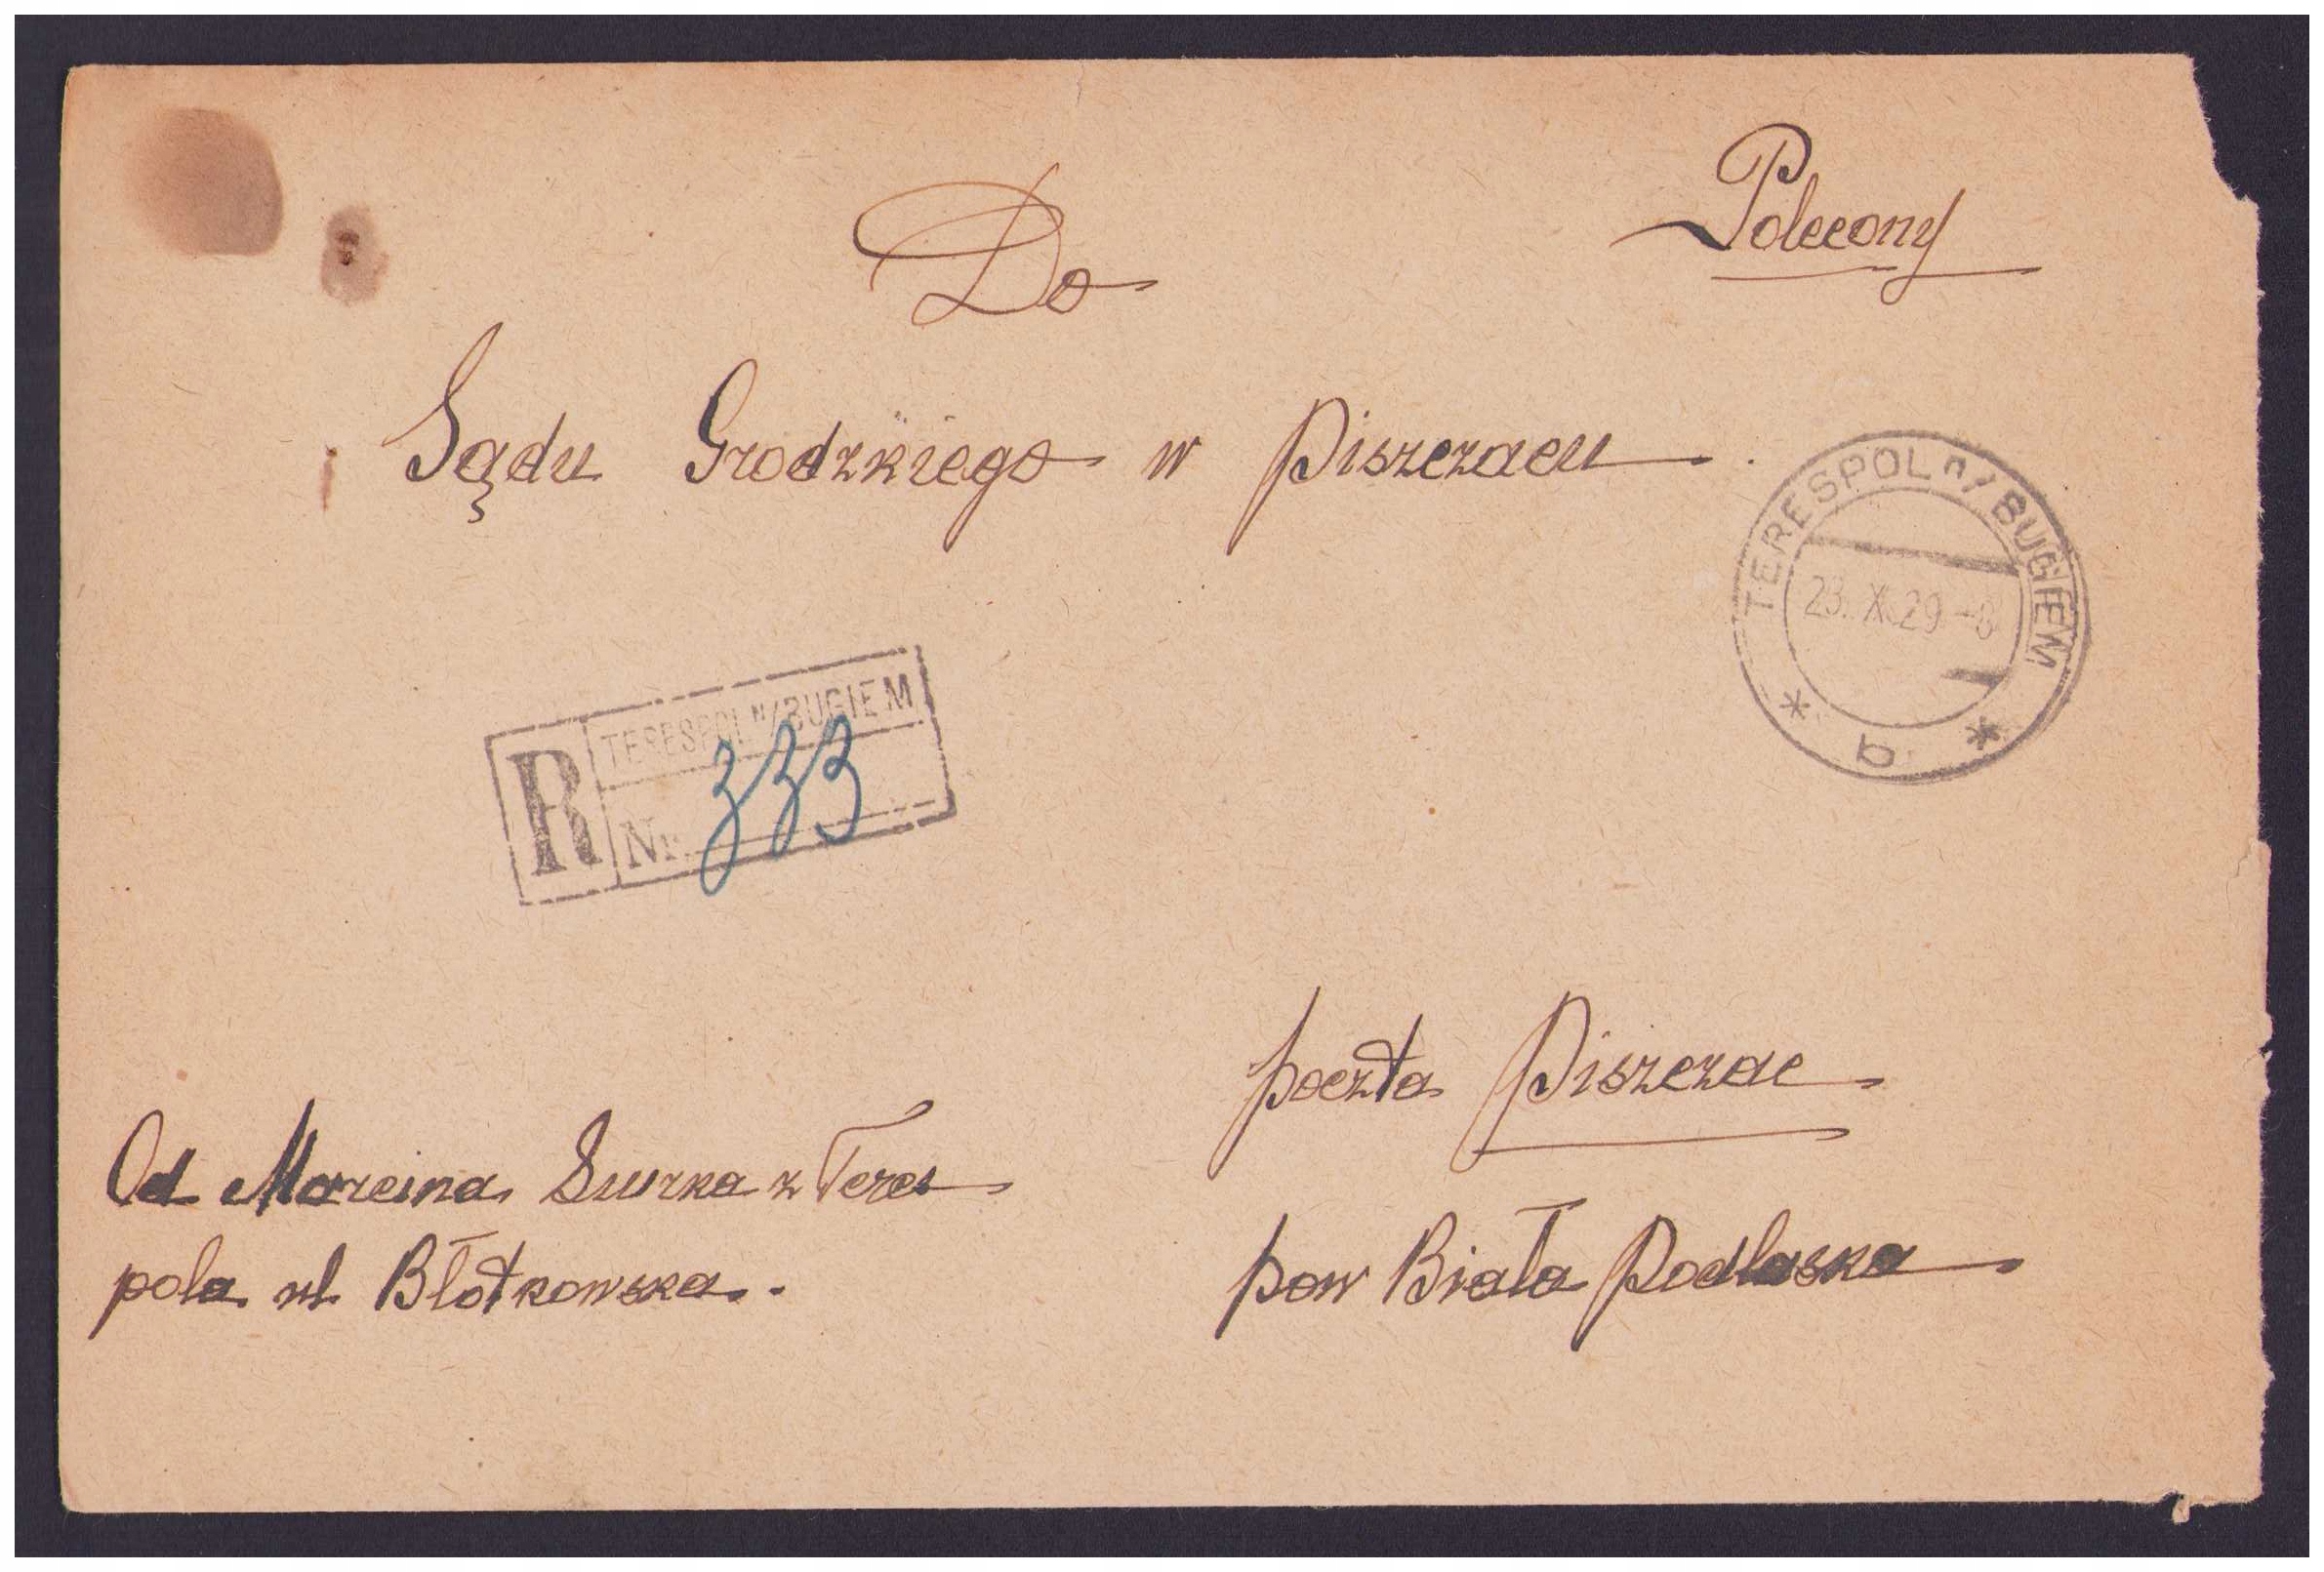 Polecony
Do
Sądu Grodzkiego w Piszczacu
TERESPOL n/BUGIEM
23. X. 29 -8
b
R TERESPOL n/BUGIEM
Nr. 333
poczta Piszczac
pow Biała Podlaska
Od Marcina z Teres
pola ul. Błotkowska.